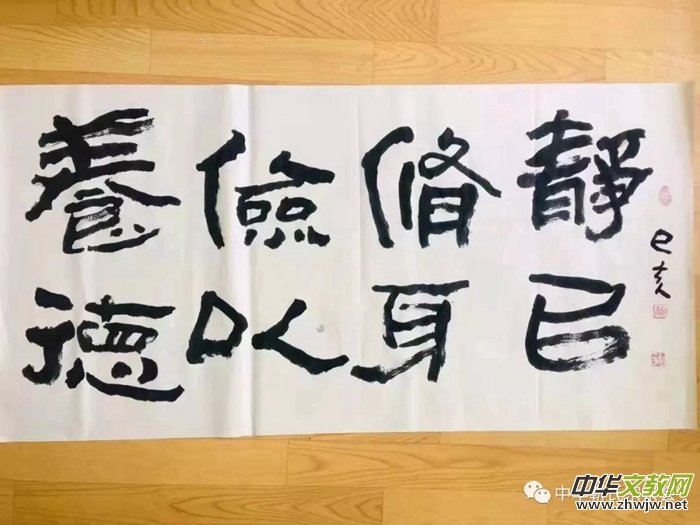 己亥
靜㠯
脩身
儉以
養德
中华文教网
www.zhwjw.net